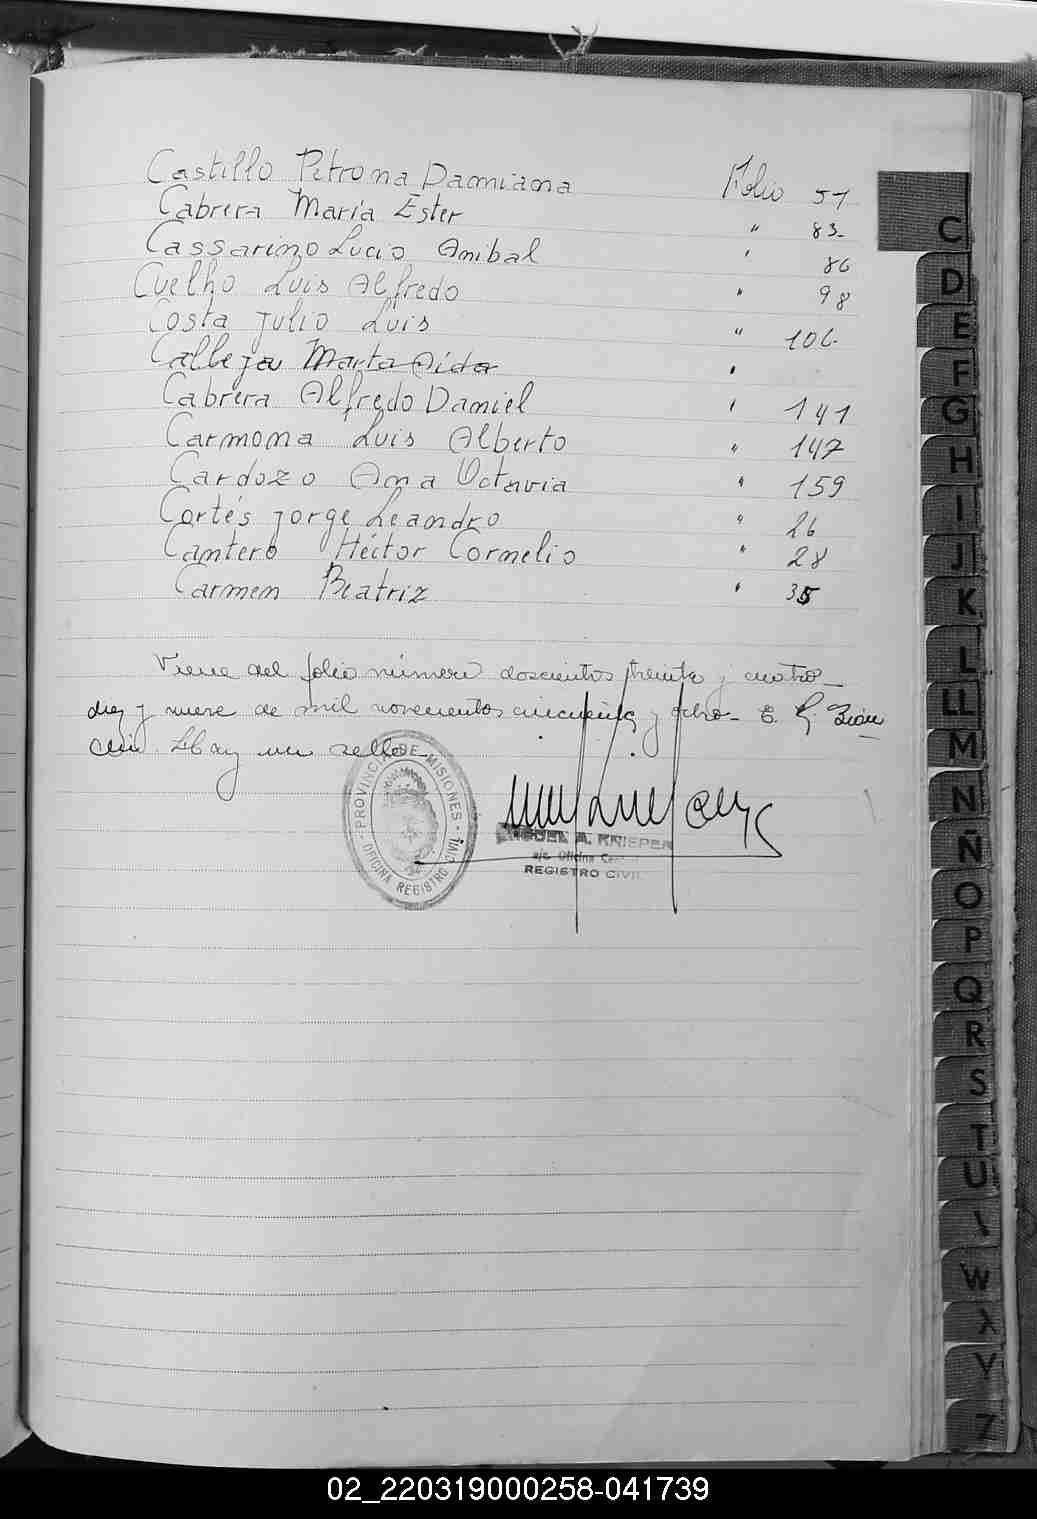 Castillo Petrona Damiana Folio 51
Cabrera María Ester " 83-
Cassarino Lucio Anibal " 86
Cuelho Luis Alfredo " 98
Costa Julio Luis " 106-
Calleja Marta Aida "
Cabrera Alfredo Daniel " 141
Carmona Luis Alberto " 147
Cardozo Ana Octavia " 159
Cortés Jorge Leandro " 26
Cantero Héctor Cornelio " 28
Carmen Beatriz " 35
Viene del folio número doscientos treinta y cuatro-
diez y nueve de mil novecientos cincuenta y ocho- E. G.
Hay un sello
PROVINCIA DE MISIONES
OFICINA REGISTRO CIVIL
MIGUEL A. KNIEPER
a/c. Oficina
REGISTRO CIVIL
C
D
E
F
G
H
I
J
K
L
LL
M
N
Ñ
O
P
Q
R
S
T
U
W
X
Y
Z
02_220319000258-041739